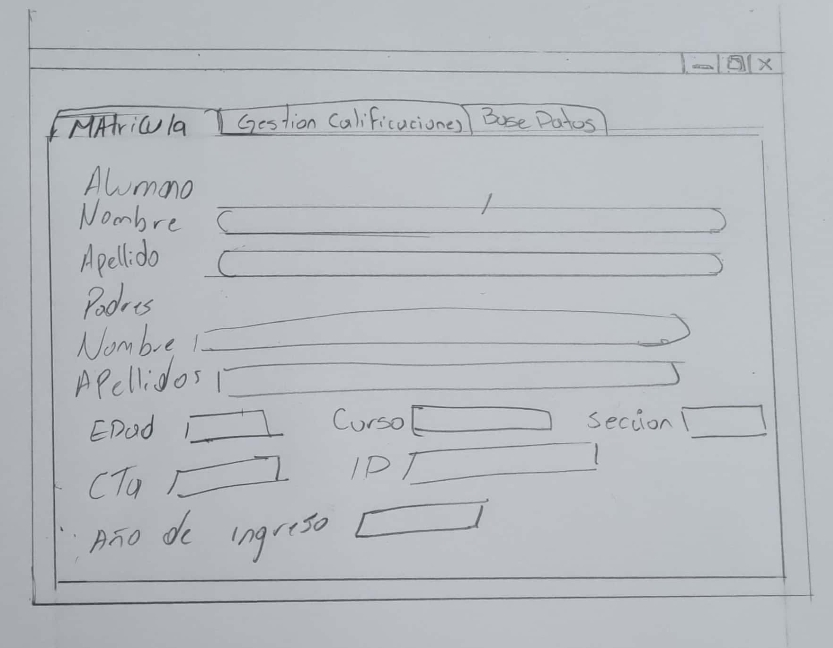 MAtricula Gestion Calificaciones Base Datos
Alumno
Nombre
Apellido
Padres
Nombre
APellidos
EDad Curso Seccion
CTa ID
Año de ingreso